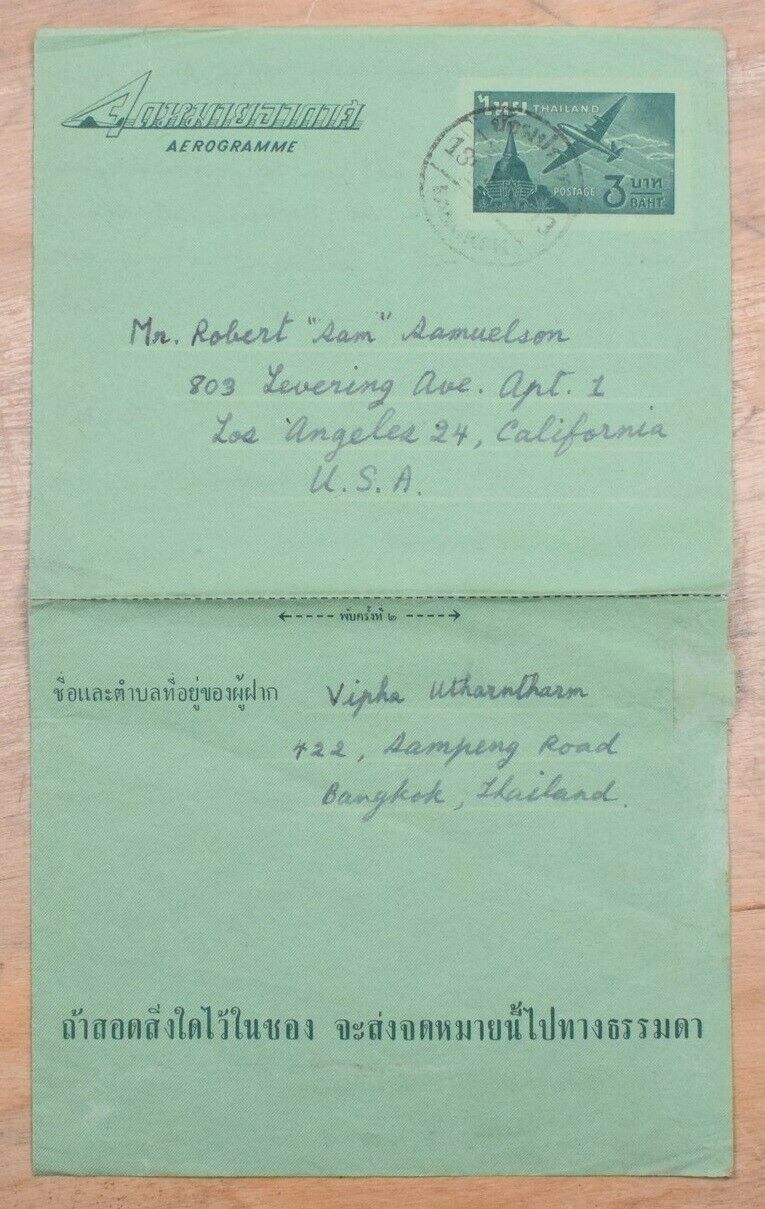 จดหมายอากาศ
AEROGRAMME
ไทย THAILAND
POSTAGE 3 บาท BAHT
Mr. Robert "Sam" Samuelson
803 Levering Ave. Apt. 1
Los Angeles 24, California
U.S.A.
พับครั้งที่ ๒
ชื่อและตำบลที่อยู่ของผู้ฝาก Vipha Utharntharm
422, Sampeng Road
Bangkok, Thailand.
ถ้าสอดสิ่งใดไว้ในซอง จะส่งจดหมายนี้ไปทางธรรมดา